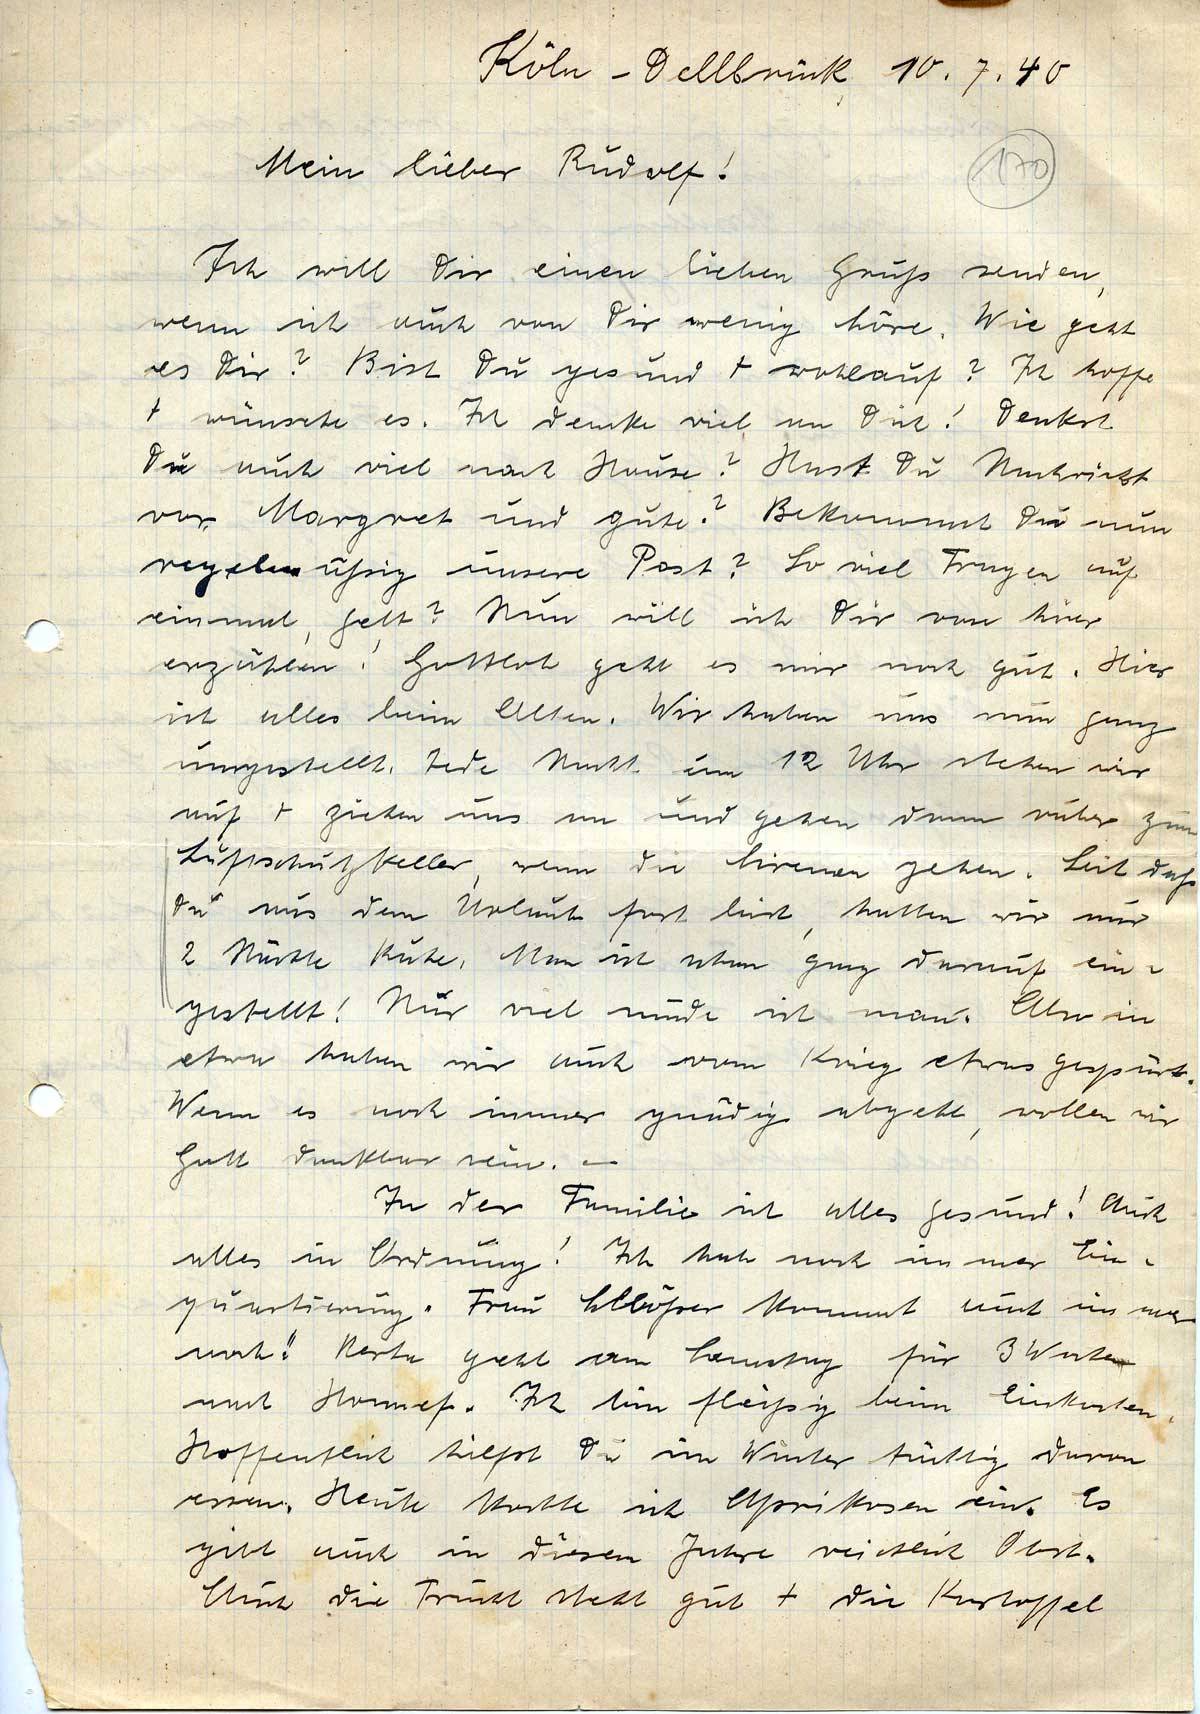 Köln-Dellbrück, 10.7.40
170
Mein lieber Rudolf!
Ich will Dir einen lieben Gruß senden,
wenn ich auch von Dir wenig höre. Wie geht
es Dir? Bist Du gesund + wohlauf? Ich hoffe
+ wünsche es. Ich denke viel an Dich! Denkst
Du auch viel nach Hause? Hast Du Nachricht
von Margret und gute? Bekommst Du nun
regelmäßig unsere Post? So viel Fragen auf
einmal, gelt? Nun will ich Dir von hier
erzählen! Gottlob geht es mir noch gut. Hier
ist alles beim Alten. Wir haben uns nun ganz
umgestellt. Jede Nacht um 12 Uhr stehen wir
auf + ziehen uns an und gehen dann rüber zum
Luftschutzkeller, wenn die Sirenen gehen. Seit daß
Du aus dem Urlaub fort bist, hatten wir nur
2 Nächte Ruhe. Man ist schon ganz darauf ein-
gestellt! Nur viel müde ist man. Also in
etwa haben wir auch vom Krieg etwas gespürt.
Wenn es noch immer gnädig abgeht, wollen wir
Gott dankbar sein. —
In der Familie ist alles gesund! Auch
alles in Ordnung! Ich hab noch immer Ein-
quartierung. Frau kommt auch immer
noch! geht am Samstag für 3 Wochen
nach Honnef. Ich bin fleißig beim Einkochen.
Hoffentlich hilfst Du im Winter tüchtig davon
essen. Heute kochte ich Aprikosen ein. Es
gibt auch in diesem Jahre reichlich Obst.
Auch die Frucht steht gut + die Kartoffel